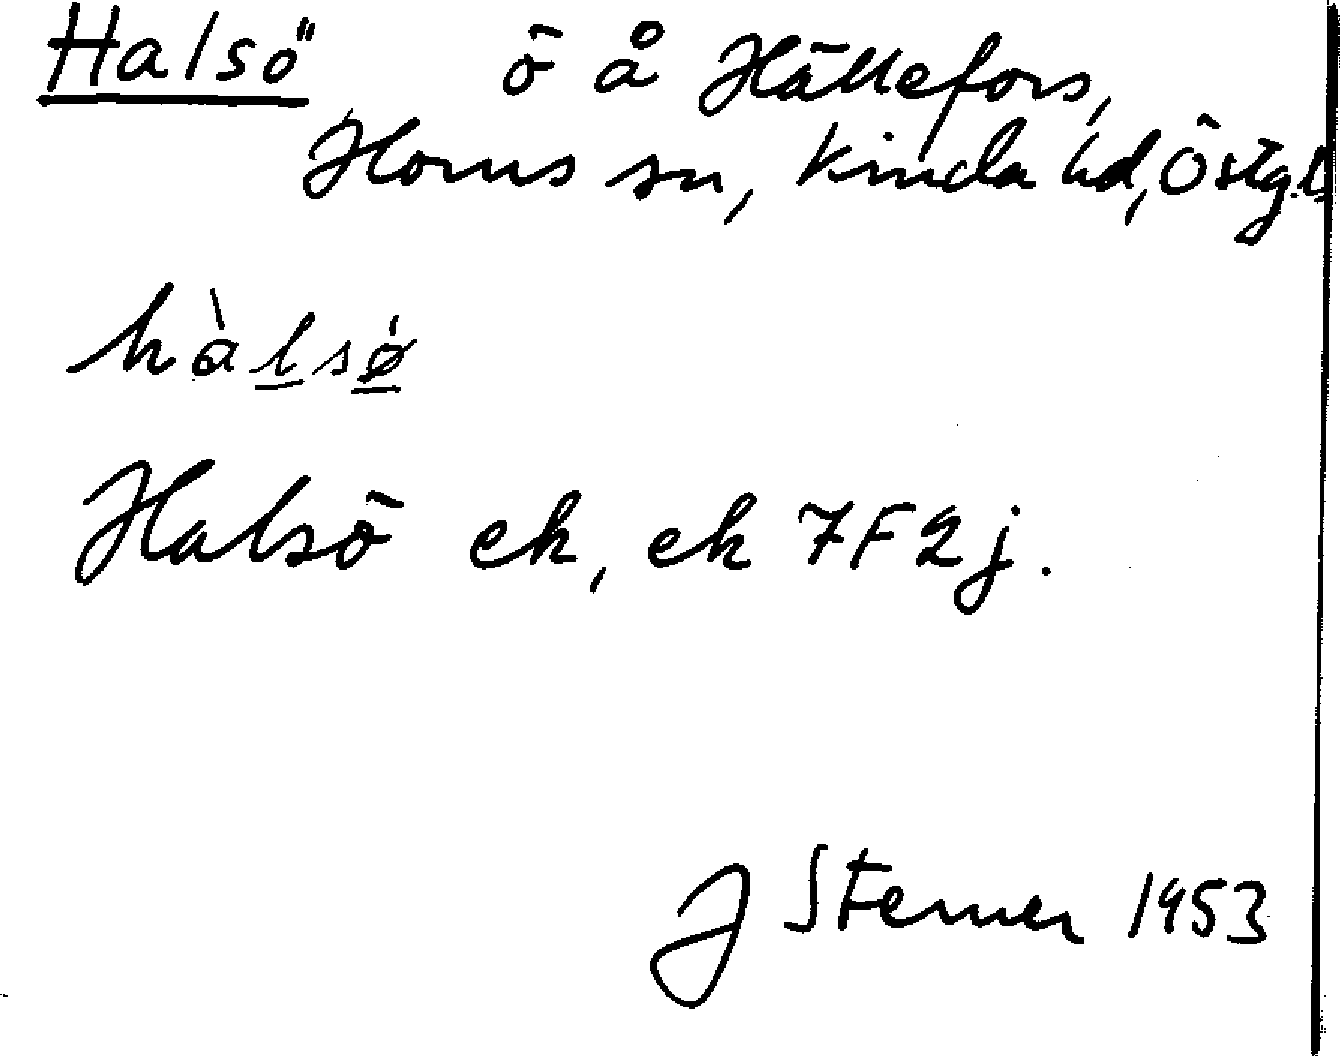 Halsö ö å Hällefors,
Horns sn, Kinda hd, Östg.l
hàlsø
Halsö ek, ek 7F2j.
J Sterner 1953